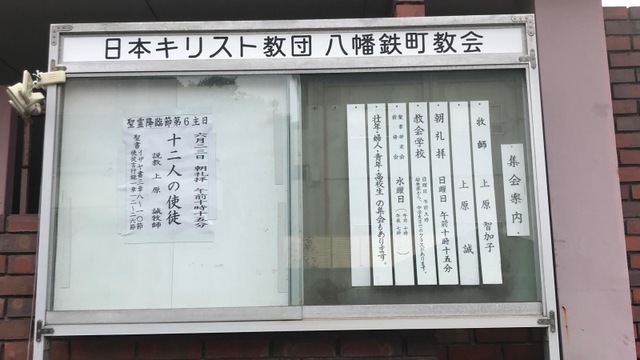 日本キリスト教団 八幡鉄町教会
集会案内
牧師 上原 智加子
上原 誠
朝礼拝 日曜日 午前十時十五分
教会学校
水曜日
壮年・婦人・青年・高校生の集会もあります。
聖霊降臨節第6主日
六月二三日 朝礼拝 午前十時十五分
十二人の使徒
説教 上原 誠牧師